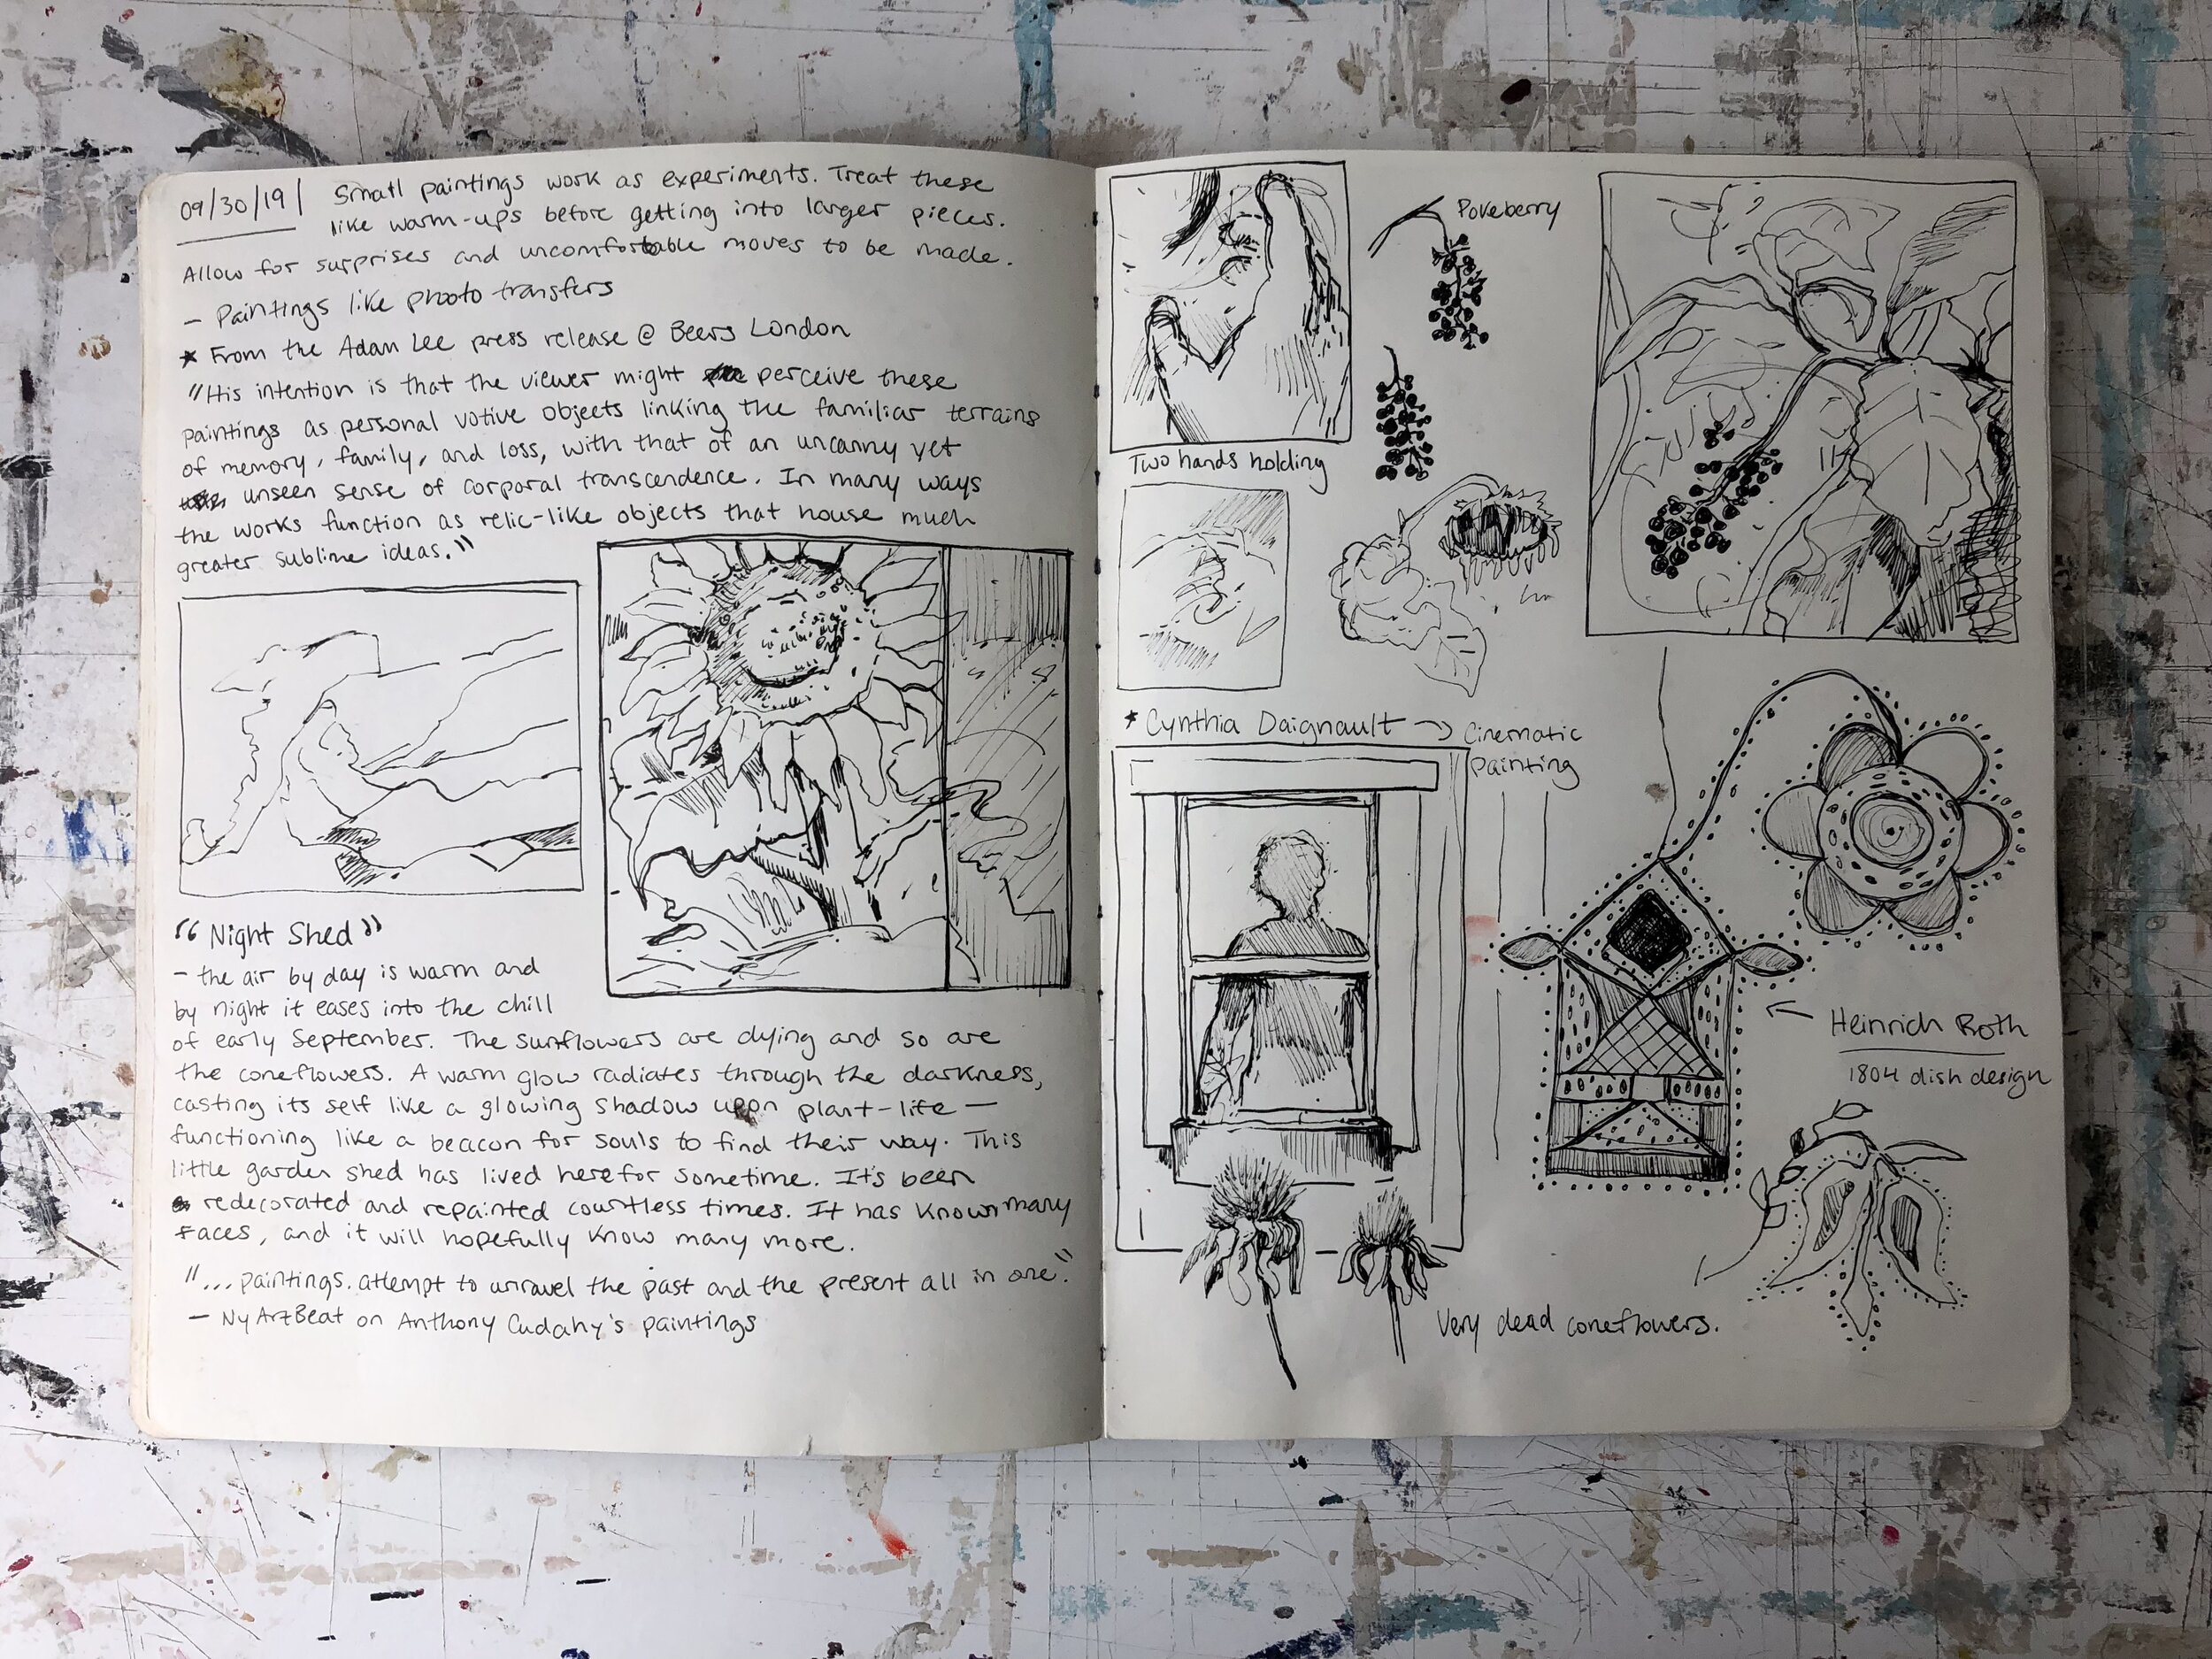 09/30/19| Small paintings work as experiments. Treat these
like warm-ups before getting into larger pieces.
Allow for surprises and uncomfortable moves to be made.
- Paintings like photo transfers
* From the Adam Lee press release @ Beers London
"His intention is that the viewer might perceive these
paintings as personal votive objects linking the familiar terrains
of memory, family, and loss, with that of an uncanny yet
unseen sense of corporal transcendence. In many ways
the works function as relic-like objects that house much
greater sublime ideas."
"Night Shed"
- the air by day is warm and
by night it eases into the chill
of early September. The sunflowers are dying and so are
the coneflowers. A warm glow radiates through the darkness,
casting its self like a glowing shadow upon plant-life —
functioning like a beacon for souls to find their way. This
little garden shed has lived here for sometime. It's been
redecorated and repainted countless times. It has known many
faces, and it will hopefully know many more.
"... paintings. attempt to unravel the past and the present all in one."
- NyArtBeat on Anthony Cudahy's paintings
Pokeberry
Two hands holding
* Cynthia Daignault → Cinematic
Painting
← Heinrich Roth
1804 dish design
Very dead coneflowers.